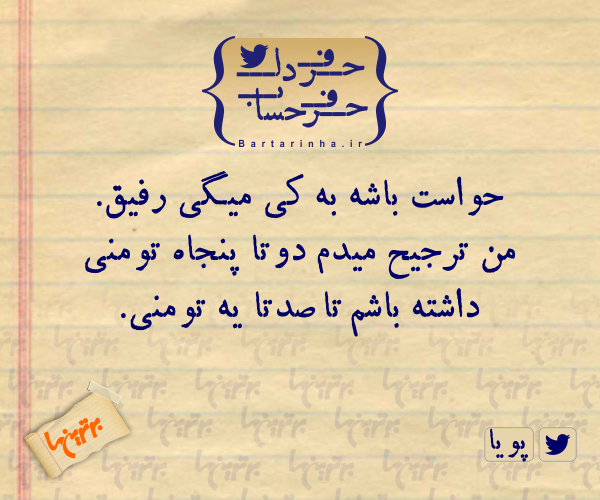 حرف دل
حرف حساب
Bartarinha.ir
حواست باشه به کی میگی رفیق.
من ترجیح میدم دو تا پنجاه تومنی
داشته باشم تا صد تا یه تومنی.
برترین‌ها
پویا